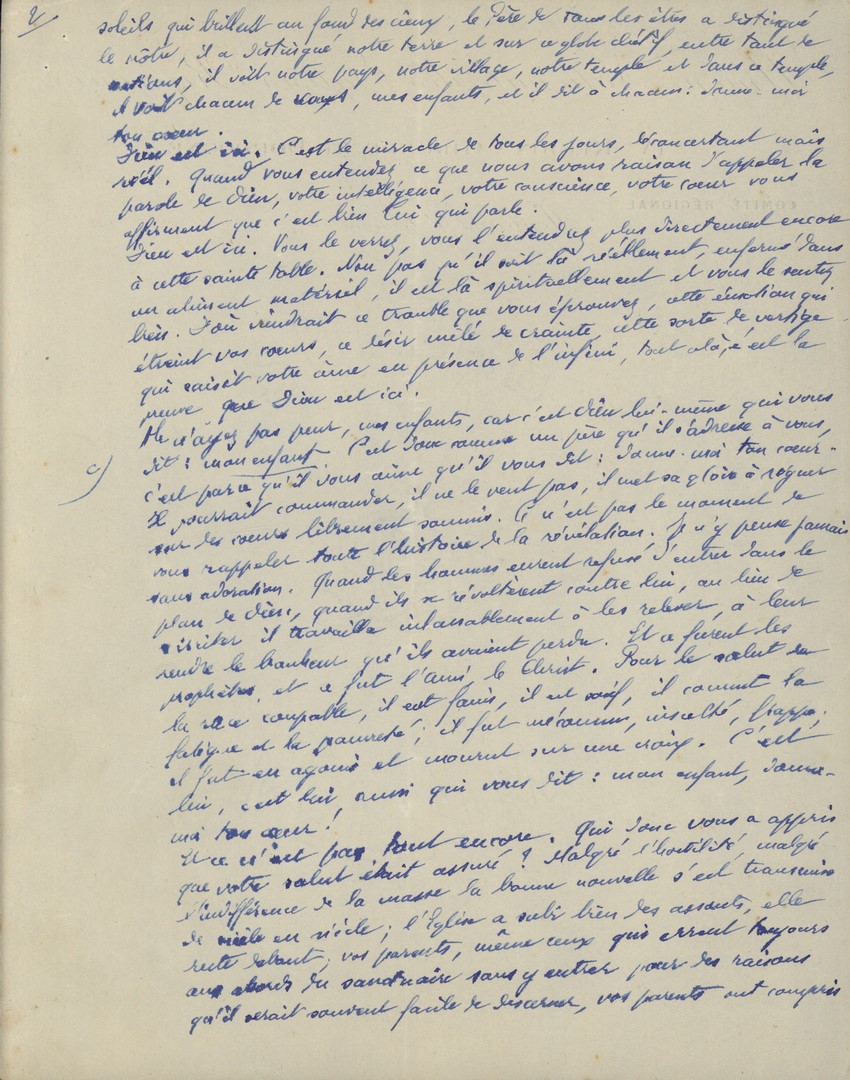 2/
soleils qui brillent au fond des cieux, le Père de tous les êtres a distingué
le nôtre, il a distingué notre terre et sur ce globe chétif, entre tant de
nations, il voit notre pays, notre village, notre temple et dans ce temple,
il voit chacun de vous, mes enfants, et il dit à chacun : donne-moi
ton cœur.
Dieu est ici. C'est le miracle de tous les jours, déconcertant mais
réel. Quand vous entendez ce que nous avons raison d'appeler la
parole de Dieu, votre intelligence, votre conscience, votre cœur vous
affirment que c'est bien lui qui parle.
COMITÉ RÉGIONAL
Dieu est ici. Vous le verrez, vous l'entendrez plus directement encore
à cette sainte table. Non pas qu'il soit là réellement, enfermé dans
un aliment matériel, il est là spirituellement et vous le sentez
bien. D'où viendrait ce trouble que vous éprouvez, cette émotion qui
étreint vos cœurs, ce désir mêlé de crainte, cette sorte de vertige
qui saisit votre âme en présence de l'infini, tout cela, c'est la
preuve que Dieu est ici.
c)
Ah n'ayez pas peur, mes enfants, car c'est Dieu lui-même qui vous
dit : mon enfant. C'est donc comme un père qu'il s'adresse à vous,
c'est parce qu'il vous aime qu'il vous dit : donne-moi ton cœur.
Il pourrait commander, il ne le veut pas, il met sa gloire à régner
sur des cœurs librement soumis. Ce n'est pas le moment de
vous rappeler toute l'histoire de la révélation. Je n'y pense jamais
sans adoration. Quand les hommes eurent refusé d'entrer dans le
plan de Dieu, quand ils se révoltèrent contre lui, au lieu de
s'irriter il travailla inlassablement à les relever, à leur
rendre le bonheur qu'ils avaient perdu. Et ce furent les
prophètes, et ce fut l'ami, le Christ. Pour le salut de
la race coupable, il eut faim, il eut soif, il connut la
fatigue et la pauvreté ; il fut méconnu, insulté, frappé,
il fut en agonie et mourut sur une croix. C'est
lui, c'est lui, aussi qui vous dit : mon enfant, donne-
moi ton cœur !
Et ce n'est pas tout encore. Qui donc vous a appris
que votre salut était assuré ? Malgré l'hostilité, malgré
l'indifférence de la masse la bonne nouvelle s'est transmise
de siècle en siècle ; l'Eglise a subi bien des assauts, elle
reste debout ; vos parents, même ceux qui errent toujours
aux abords du sanctuaire sans y entrer pour des raisons
qu'il serait souvent facile de discerner, vos parents ont compris